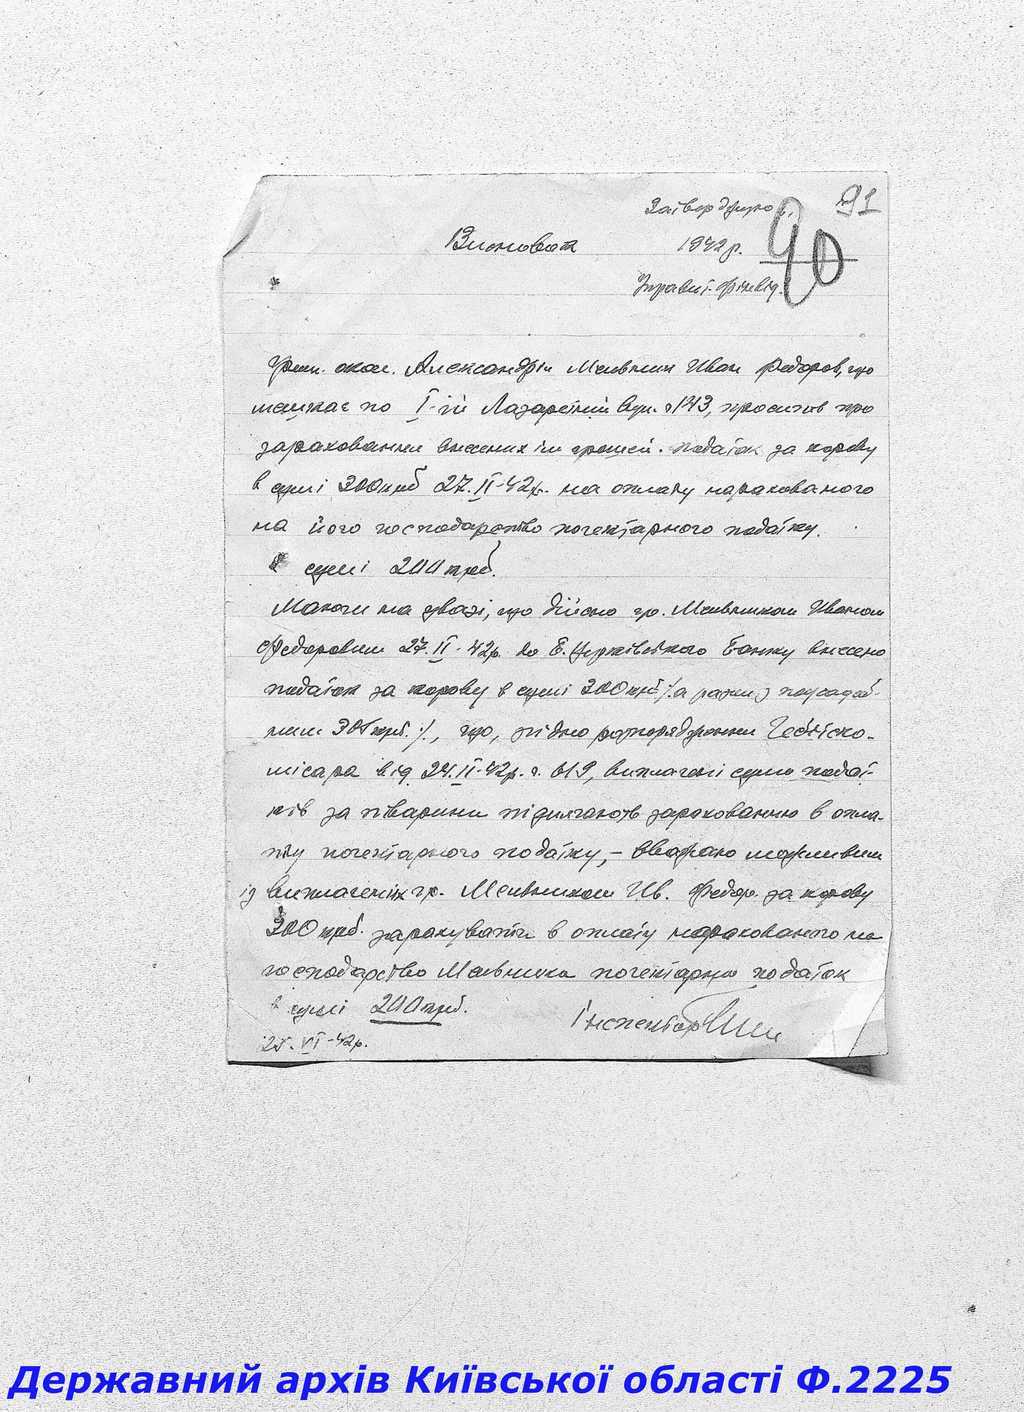 Затверджую
91
90
Висновок
1942р.
Управл. Фінвід.
Гром. окол. Александрія Мельник Иван Федоров, що
мешкає по І-ій Лазаретній вул. 143, просить про
зарахування внесених їм грошей податок за корову
в сумі 300 крб 27.II-42р. на оплату нарахованого
на його господарство погектарного податку.
в сумі 200 крб.
Маючи на увазі, що дійсно гр. Мельником Иваном
Федоровим 27.II-42р. до Б. Церківського Банку внесено
податок за корову в сумі 300 крб /а разом з
крб./, що, згідно розпорядження Гебітско-
місара від 24.II-42р. виплачені суми подат-
ків за тварини підлягають зарахованню в опла-
ту погектарного податку, – вважаю можливим
із виплачених гр. Мельником Ив. Федор. за корову
300 крб. зарахувати в оплату нарахованого на
господарство Мельника погектарного податок
в сумі 200 крб.
Інспектор
25.VI-42р.
Державний архів Київської області Ф.2225